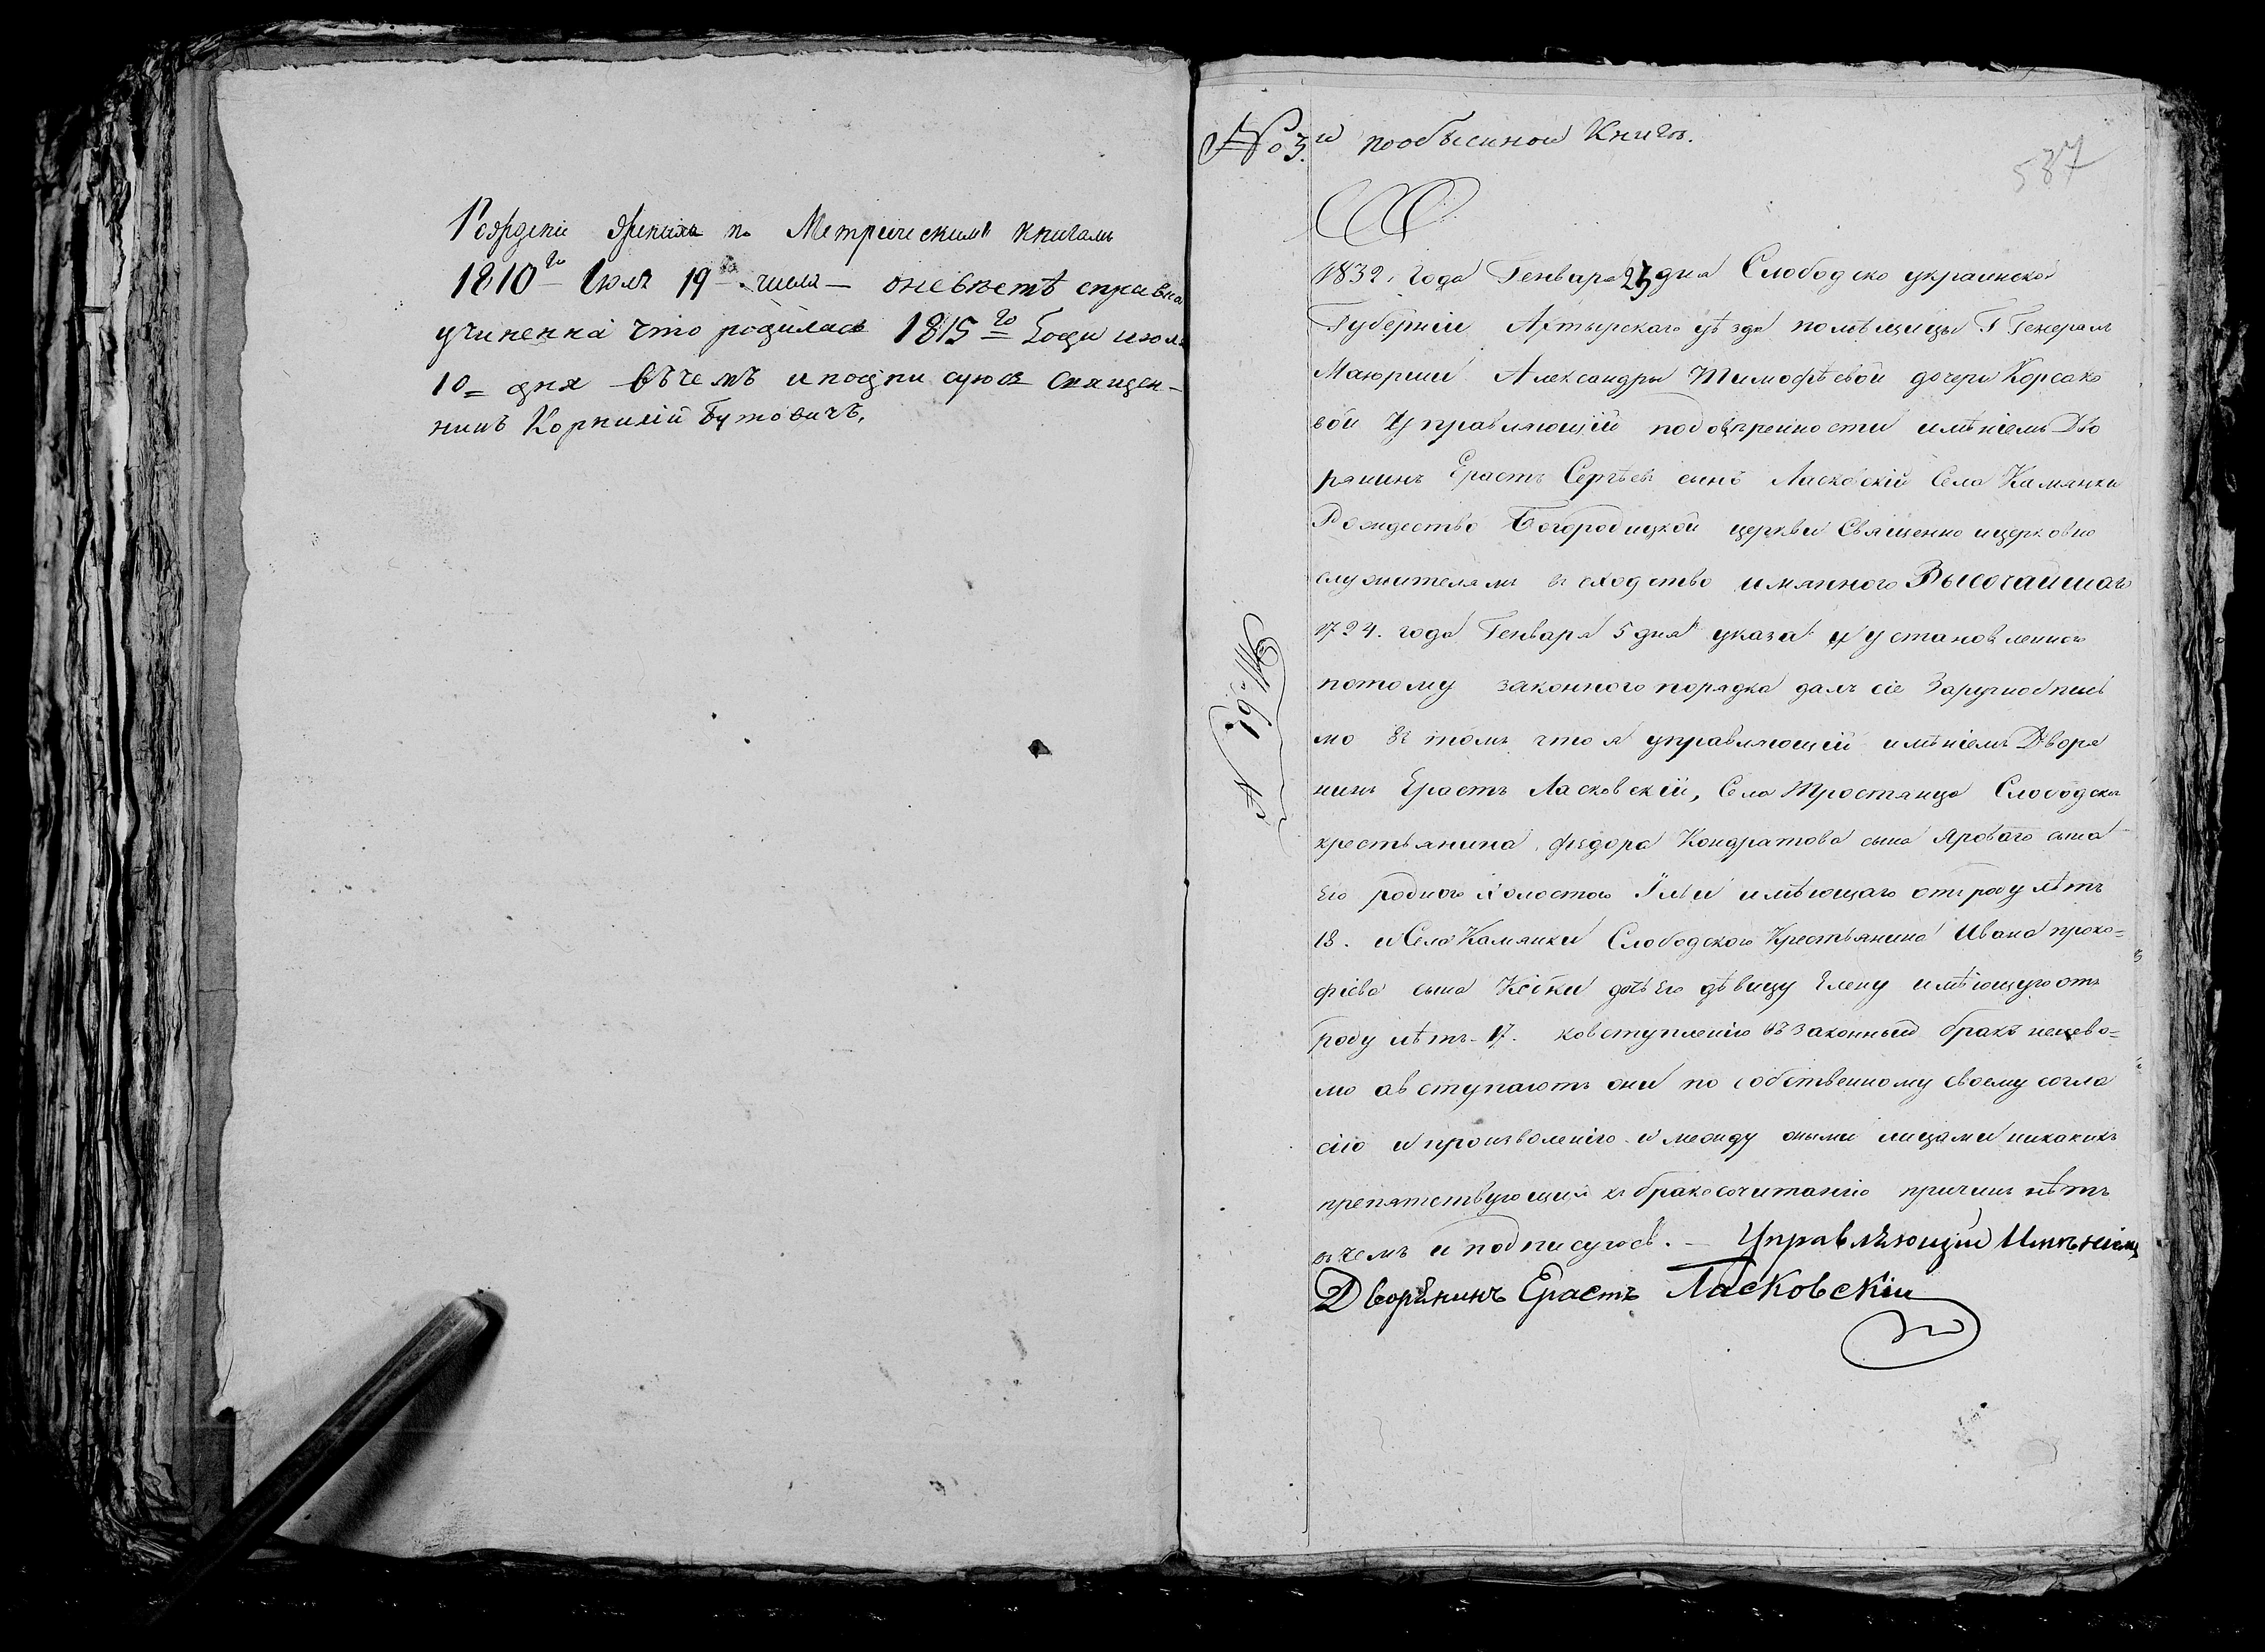 Рождение Жениха по Метрическимъ книгамъ
1810го Июля 19 числа — оневѣстѣ справка
учиненна что родилась 1815го Года июля
10 дня въчемъ иподписуюсь Священ-
никъ Корнилий Бутовичъ.
№ 3й пообыскной Книгѣ.
587
1832. Года Генваря 23 дня Слободско украинской
Губерніи Ахтырскаго уѣзда помѣщицы Г Генералъ
Маюрши Александры Тимофѣевой дочери Корсако
вой Управляющій подовѣренности имѣніемъ Дво
рянинъ Ерастъ Сергѣевъ сынъ Ласковскій Села Камянки
Рождество Богородицкой церкви Священно ицерковно
служителямъ въ сходство имянного Высочайшаго
1724. года Генваря 5 дня указа и установленного
потому законного порядка далъ сіе Заручноеписъ
мо въ томъ что я управляющій имѣніемъ Дворя
нинъ Ерастъ Ласковскій, Села Тростянца Слободского
крестьянина Федора Кондратова сына Яроваго сына
Его родного холостого Илью имѣющаго отъ роду лѣтъ
18. и Села Камянки Слободского Крестьянина Ивана проко=
фіева сына дочь Его дѣвицу Елену имѣющую отъ
роду лѣтъ 17. ковступленію въ законный бракъ ненево=
лю авступаютъ они по собственному своему согла
сію и произволенію и между оными лицами никакихъ
препятствующихъ къ бракосочитанію причинъ нѣтъ
въ чемъ и подписуюсь. — Управляющій Имѣніемъ
Дворянинъ Ерастъ Ласковскій